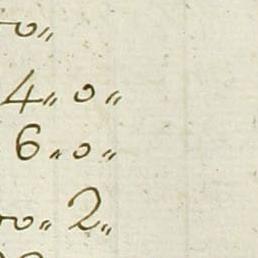 o„
4„ o„
6„ o„
o„ 2„